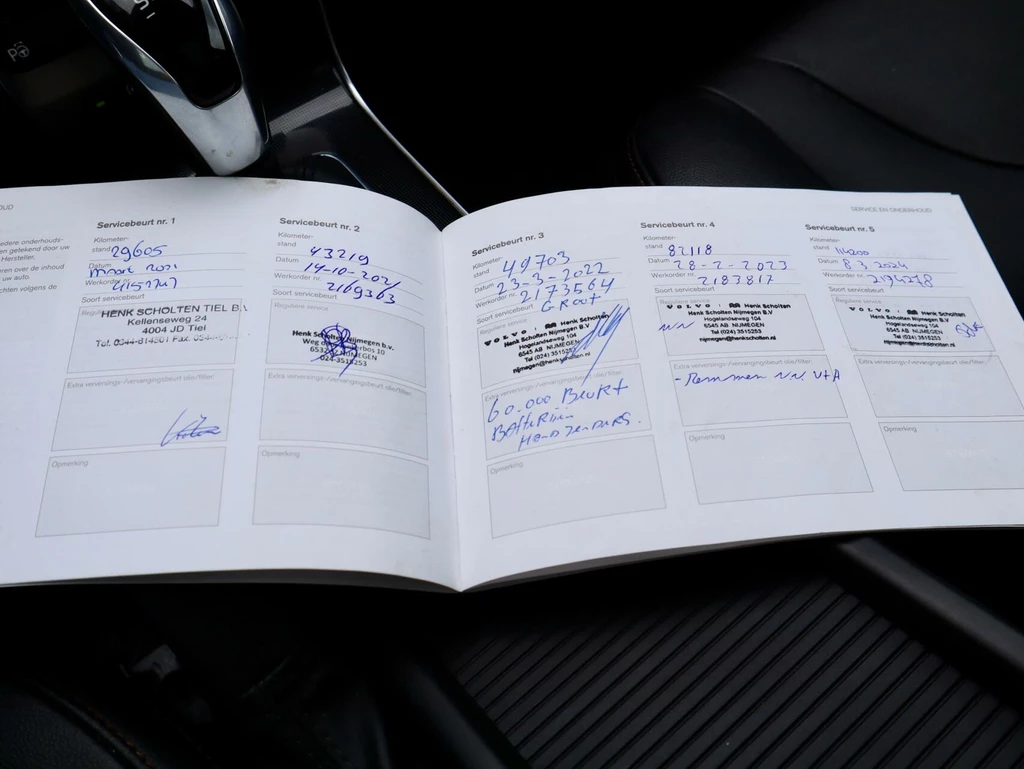 OUD
edere onderhouds-
getekend door uw
Hersteller.
eren over de inhoud
uw auto.
chten volgens de
Servicebeurt nr. 1
Kilometer-
stand 29605
Datum maart 2021
Werkorder nr.
Soort servicebeurt
HENK SCHOLTEN TIEL
Kellenseweg 24
4004 JD Tiel
Extra verversings-/vervangingsbeurt olie/filter:
Opmerking
Servicebeurt nr. 2
Kilometer-
stand 43219
Datum 14-10-2021
Werkorder nr. 2169363
Soort servicebeurt
Reguliere service
Henk Scholten Nijmegen b.v.
NIJMEGEN
024-3515253
Extra verversings-/vervangingsbeurt olie/filter:
Opmerking
Servicebeurt nr. 3
Kilometer-
stand 49703
Datum 23-3-2022
Werkorder nr. 2173564
Soort servicebeurt GROOT
Reguliere service
VOLVO Henk Scholten
Henk Scholten Nijmegen B.V
Hogelandseweg 104
6545 AB NIJMEGEN
Tel (024) 3515253
nijmegen@henkscholten.nl
Extra verversings-/vervangingsbeurt olie/filter:
60.000 BEURT
BATTERIJEN
HANDZENDERS.
Opmerking
Servicebeurt nr. 4
Kilometer-
stand 82118
Datum 28-2-2023
Werkorder nr. 2183817
Soort servicebeurt
Reguliere service
VOLVO Henk Scholten
Henk Scholten Nijmegen B.V
Hogelandseweg 104
6545 AB NIJMEGEN
Tel (024) 3515253
nijmegen@henkscholten.nl
Extra verversings-/vervangingsbeurt olie/filter:
- Remmen
Opmerking
SERVICE EN ONDERHOUD
Servicebeurt nr. 5
Kilometer-
stand
Datum 8-3-2024
Werkorder nr. 2194278
Soort servicebeurt
Reguliere service
VOLVO Henk Scholten
Henk Scholten Nijmegen B.V
Hogelandseweg 104
6545 AB NIJMEGEN
Tel (024) 3515253
nijmegen@henkscholten.nl
Extra verversings-/vervangingsbeurt olie/filter:
Opmerking